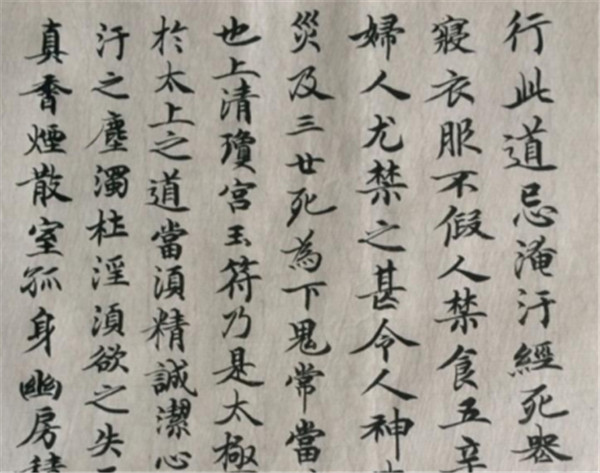 行此道忌淹汙經死喪
寢衣服不假人禁食五辛
婦人尤禁之甚令人神
災及三世死為下鬼常當
也上清瓊宮玉符乃是太極
於太上之道當須精誠潔心
汙之塵濁杜淫須欲之失
真香煙散室孤身幽房積